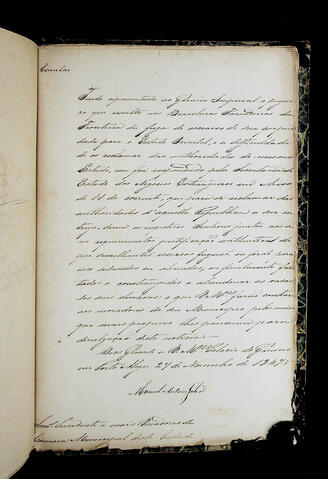 Circular
Tendo representado ao Governo Imperial o prejui-
zo que resulta aos Brasileiros Fazendeiros da
Fronteira da fuga de escravos de sua proprie-
dade para o Estado Oriental, e a difficuldade
de os reclamar das authoridades do mesmo
Estado, me foi respondido pela Secretaria de
Estado dos Negocios Estrangeiros em Aviso
de 11 do corrente, que para se reclamar das
authoridades d'aquella Republica a sua en-
trega, devem os respectivos Senhores juntar aos se-
us requerimentos justificação authentica de
que semelhantes escravos fugirão, ou forão para
ali seduzidos ou alliciados, ou finalmente
e constrangidos a abandonar as casas
dos seus Senhores: o que V. Mces farão constar
aos moradores do seu Municipio pelos meios
que mais proprios lhes parecerem para
divulgação desta noticia.
Deos Guarde a V. Mces Palacio do Governo
em Porto Alegre 27 de Novembro de 1847
Manoel Antonio Galvão
Snres Presidente e mais Vereadores da
Camara Municipal desta Cidade